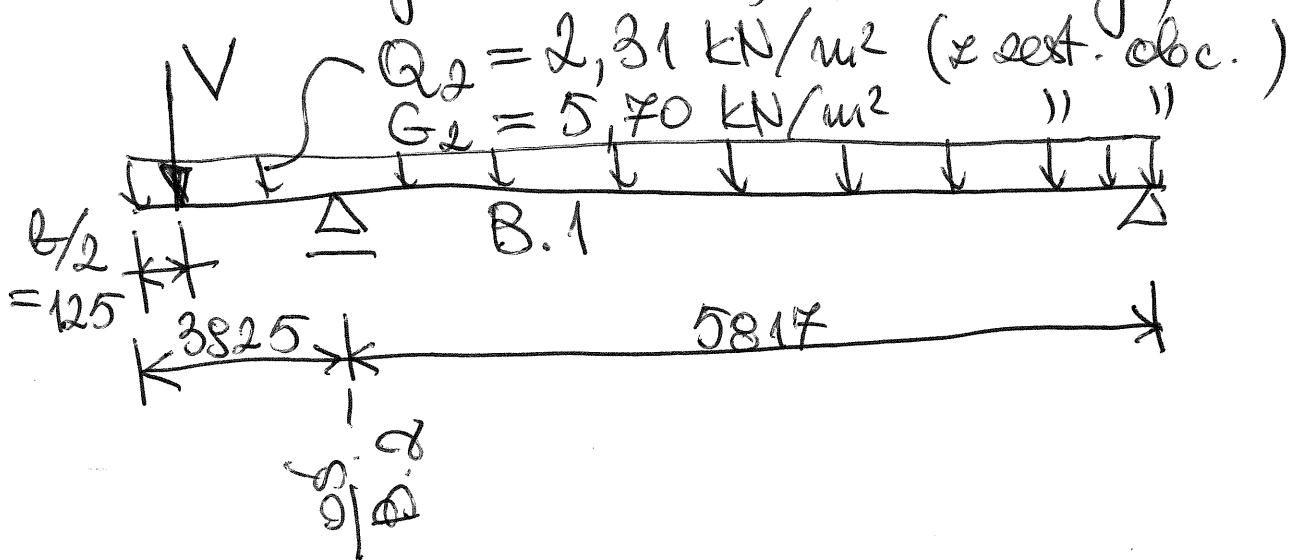 V
Q2 = 2,31 kN/m² (z zest. obc.)
G2 = 5,70 kN/m² " "
B.1
b/2
=125
3825
5817